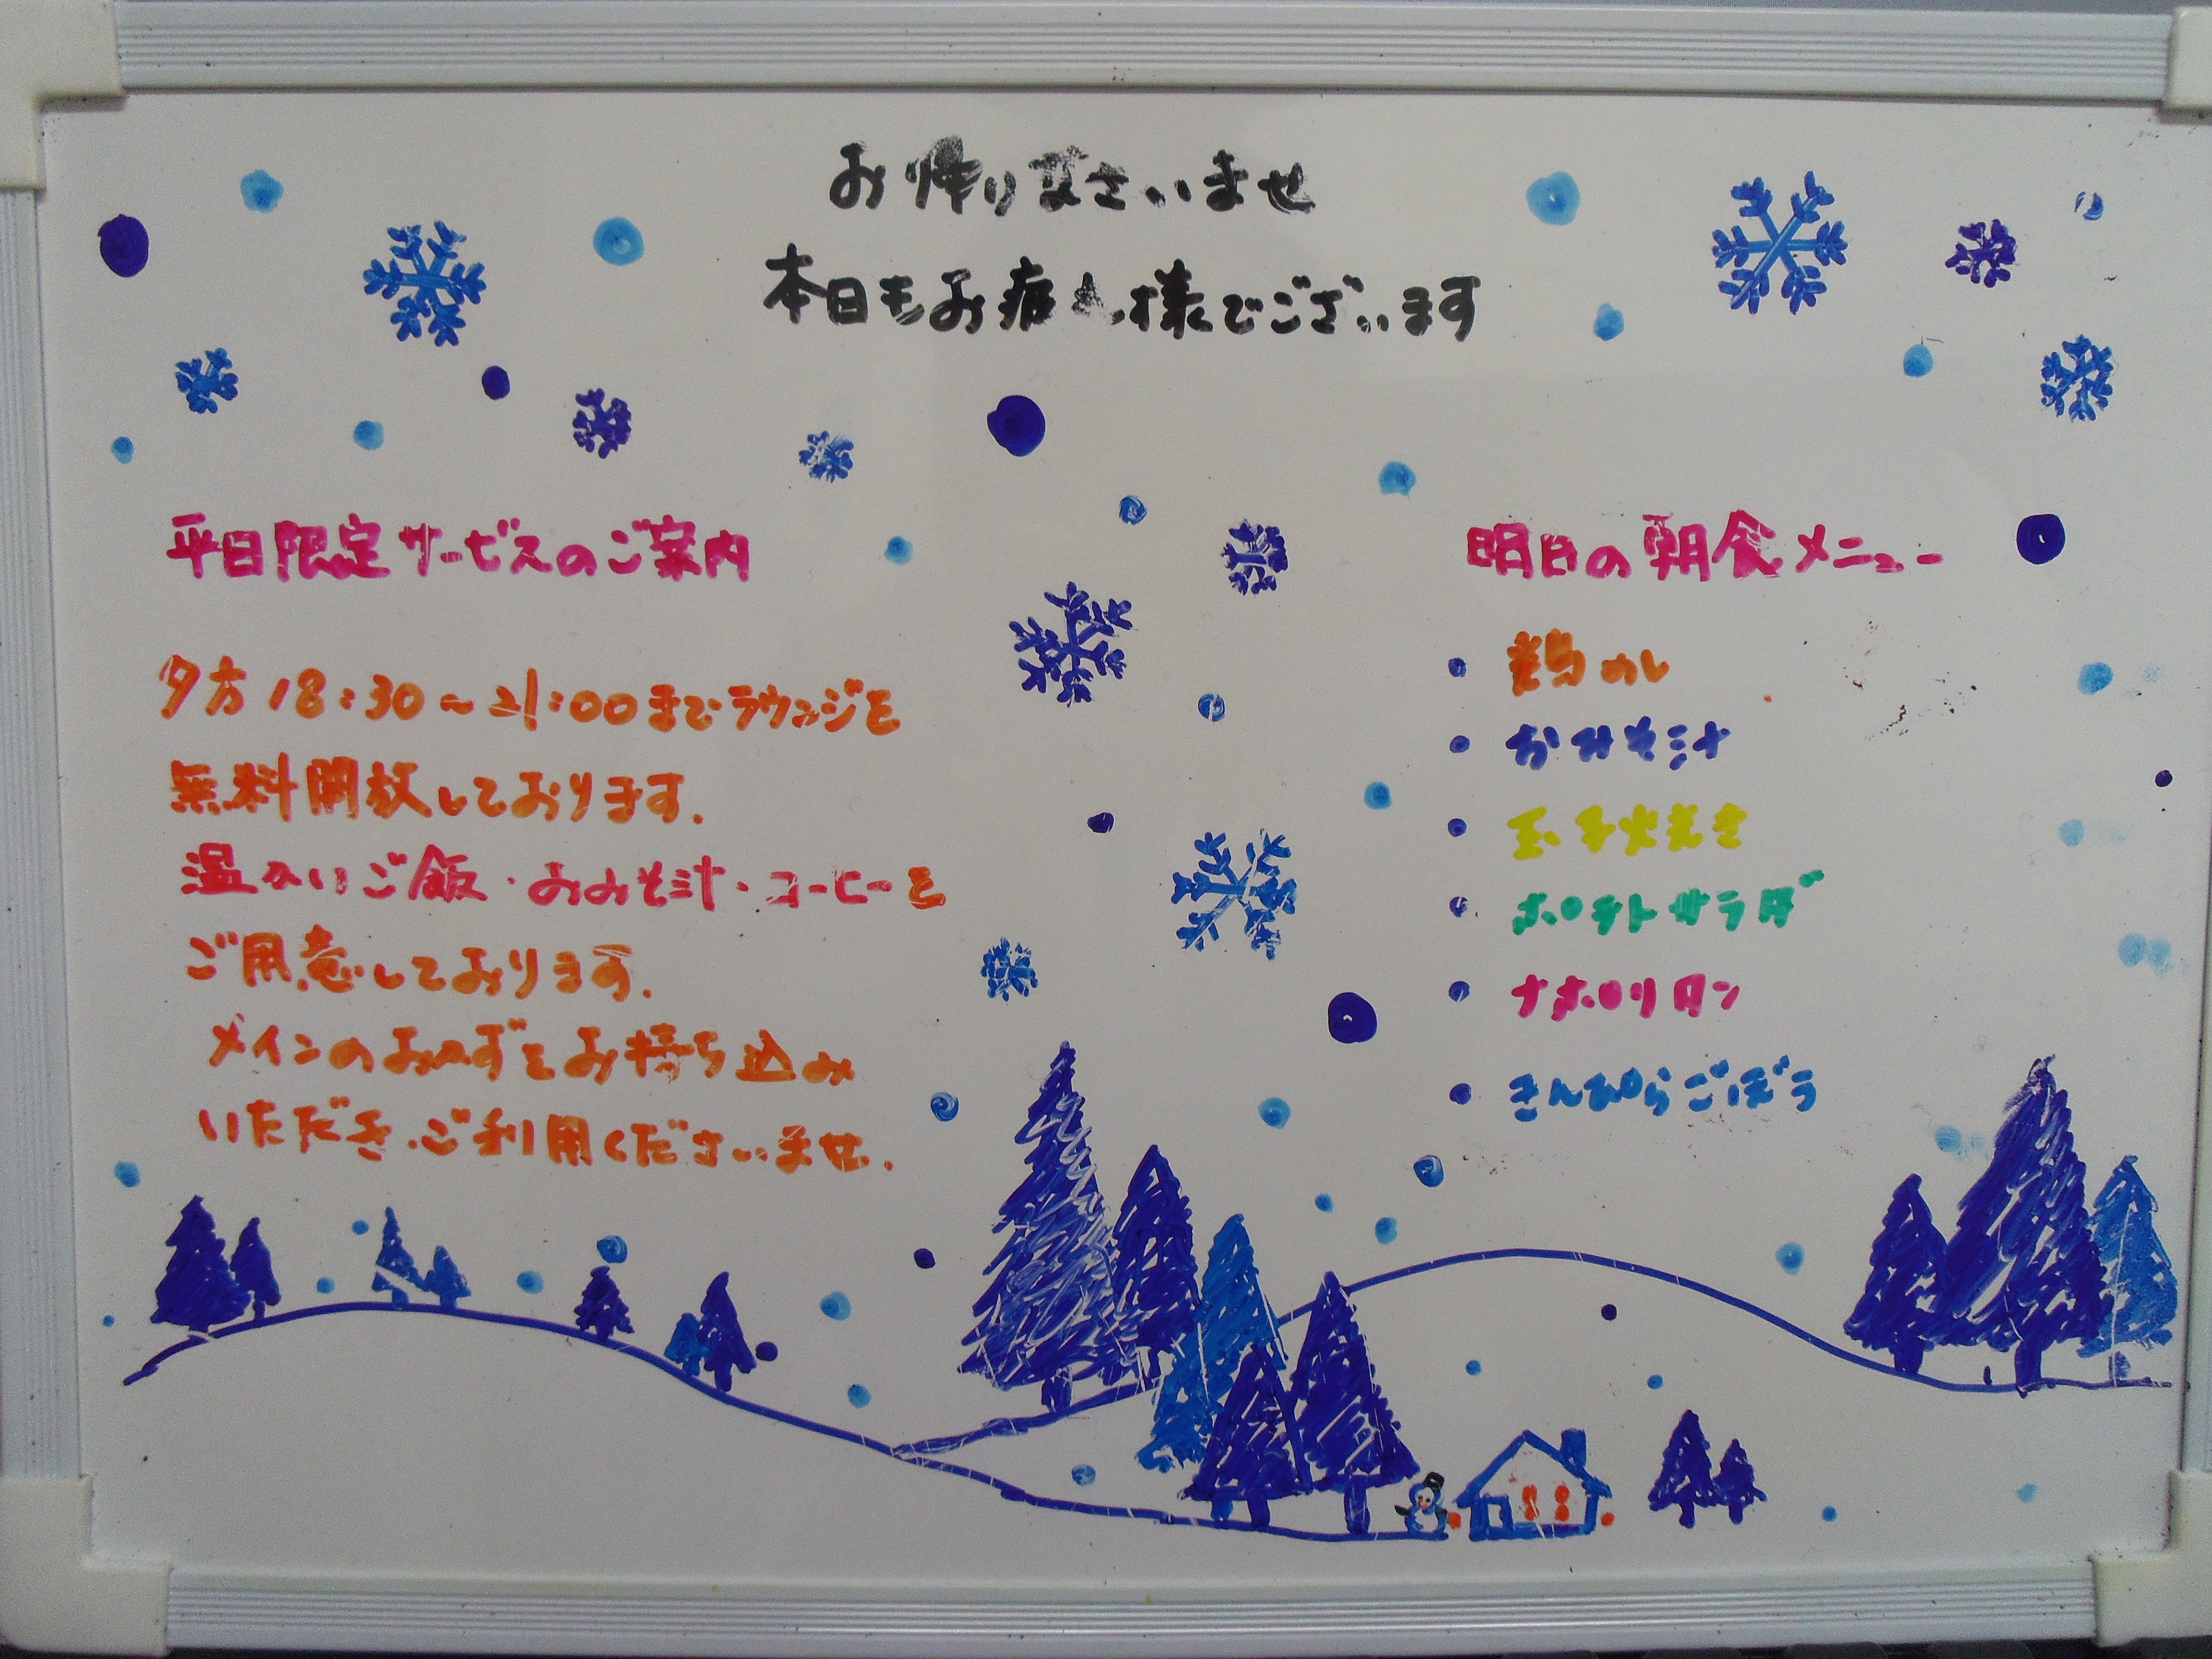 お帰りなさいませ
本日もお疲れ様でございます
平日限定サービスのご案内
夕方18:30～21:00までラウンジを
無料開放しております.
温かいご飯・おみそ汁・コーヒーを
ご用意しております.
メインのおかずをお持ち込み
いただき、ご利用くださいませ.
明日の朝食メニュー
・鶏めし
・おみそ汁
・玉子焼き
・ポテトサラダ
・ナポリタン
・きんぴらごぼう